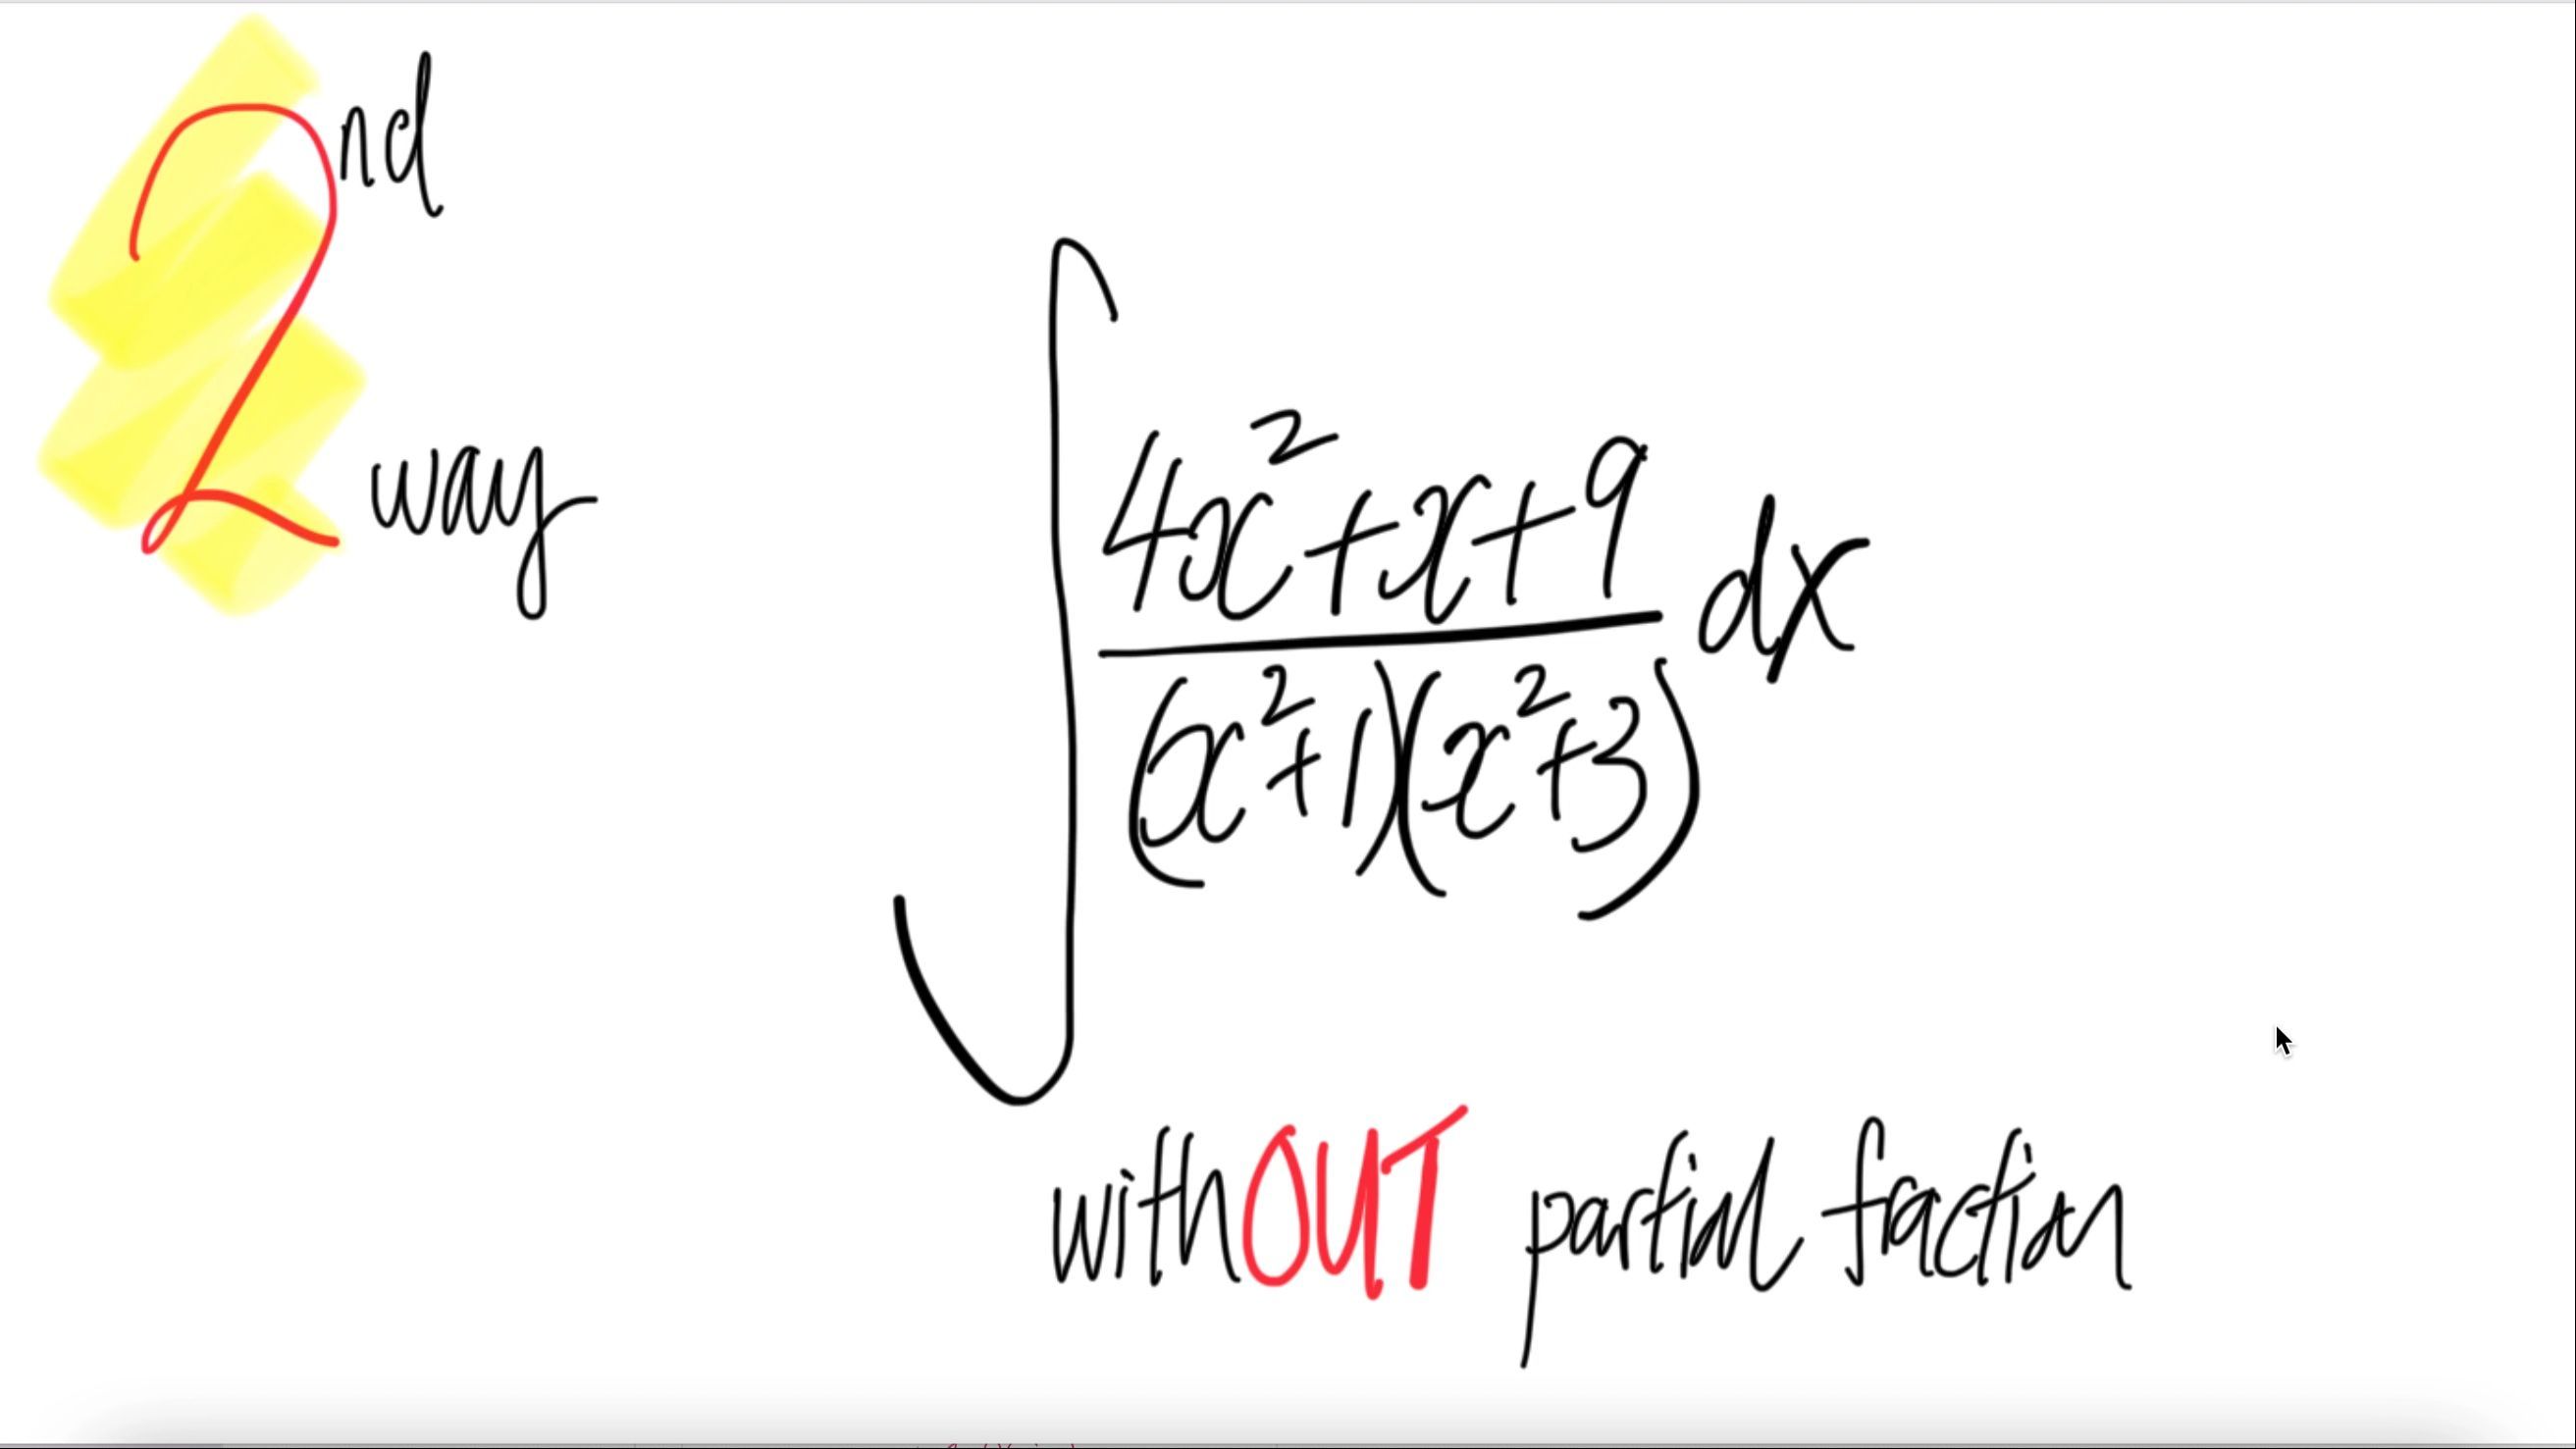 2nd way
∫ (4x²+x+9)/((x²+1)(x²+3)) dx
withOUT partial fraction